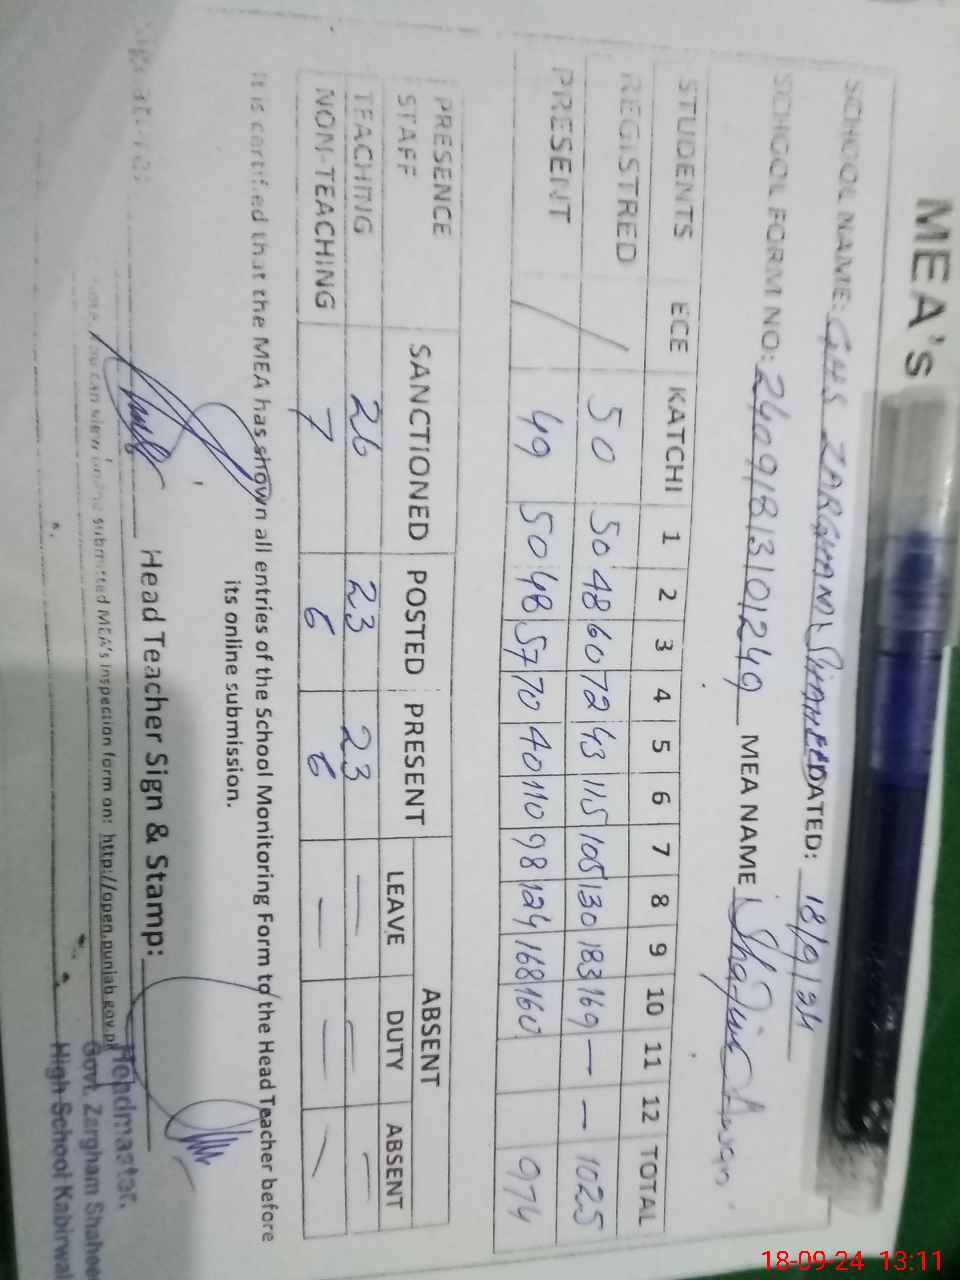 MEA's
SCHOOL NAME: GHS ZARGHAM SHAHEED DATED: 18/9/24
SCHOOL FORM NO: 24091813101249 MEA NAME
STUDENTS ECE KATCHI 1 2 3 4 5 6 7 8 9 10 11 12 TOTAL
REGISTRED / 50 50 48 60 72 43 115 105 130 183 169 — — 1025
PRESENT / 49 50 48 57 70 40 110 98 124 168 160 974
PRESENCE STAFF SANCTIONED POSTED PRESENT ABSENT
LEAVE DUTY ABSENT
TEACHING 26 23 23 — — —
NON-TEACHING 7 6 6 — — —
It is certified that the MEA has shown all entries of the School Monitoring Form to the Head Teacher before
its online submission.
Signatures Head Teacher Sign & Stamp:
you can view online submitted MEA's inspection form on: http://open.punjab.gov.pk
Headmaster,
Govt. Zargham Shahee
High School Kabirwal
18-09-24 13:11